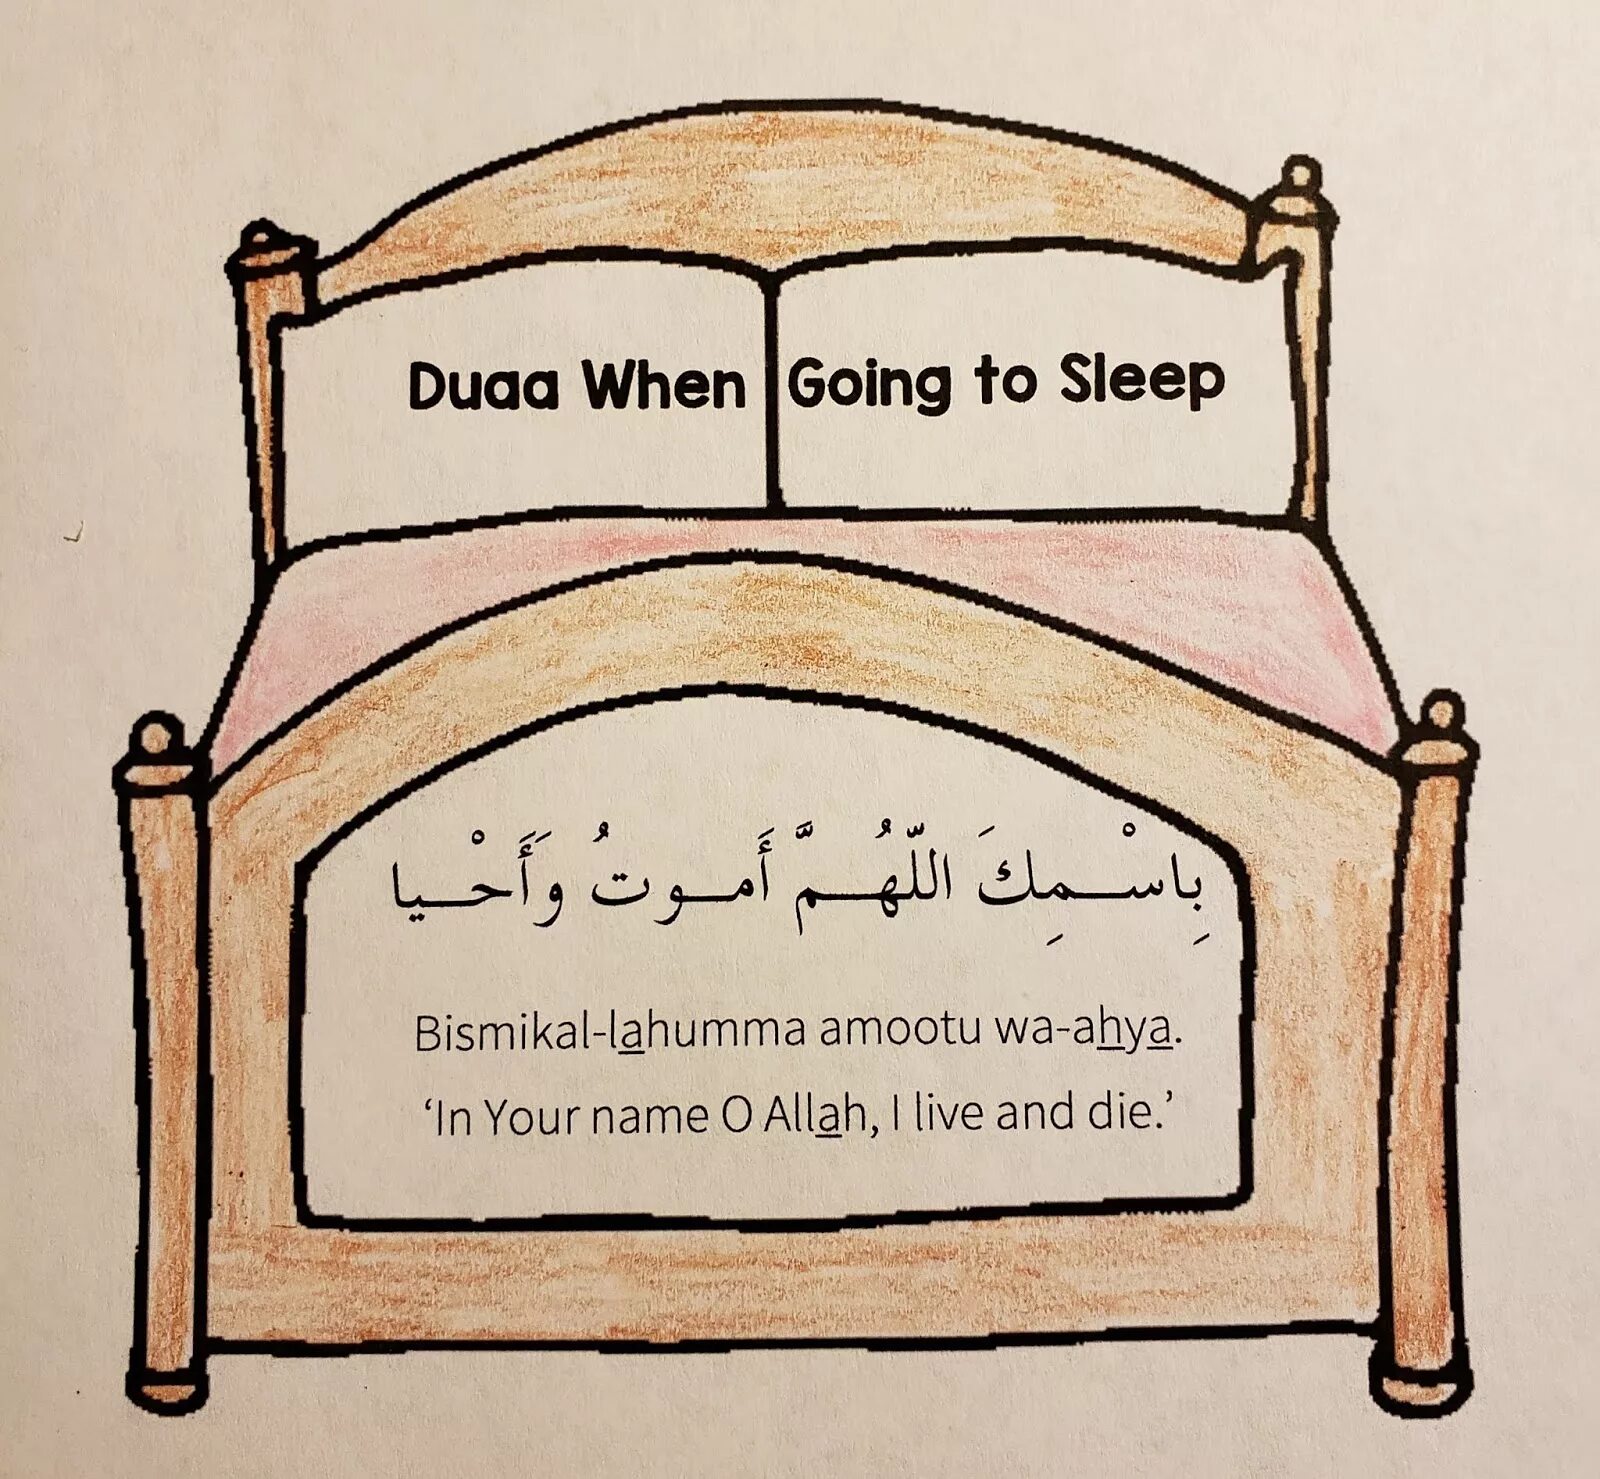 Duaa When Going to Sleep
بِاسْمِكَ اللّهُمَّ أَموتُ وَأَحْيا
Bismikal-lahumma amootu wa-ahya.
‘In Your name O Allah, I live and die.’